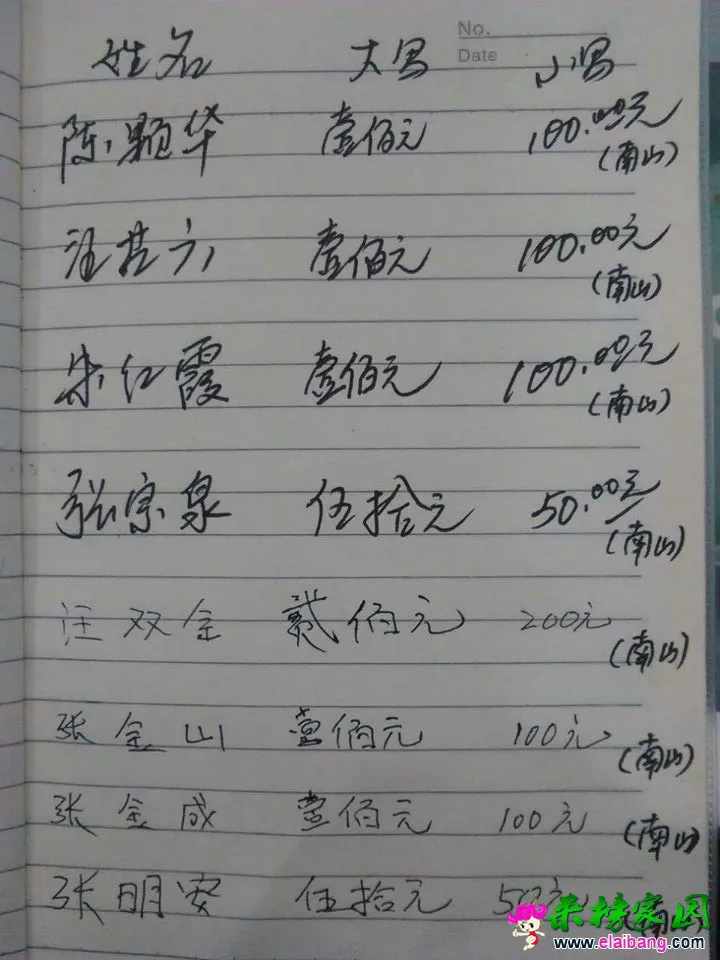 No.
Date
姓名 大写 小写
陈颖华 壹佰元 100.00元
(南山)
汪其六 壹佰元 100.00元
(南山)
朱红霞 壹佰元 100.00元
(南山)
张宗泉 伍拾元 50.00元
(南山)
汪双全 贰佰元 200元
(南山)
张金山 壹佰元 100元
(南山)
张金成 壹佰元 100元
(南山)
张明安 伍拾元 50元
(南山)
来榜家园
www.elaibang.com